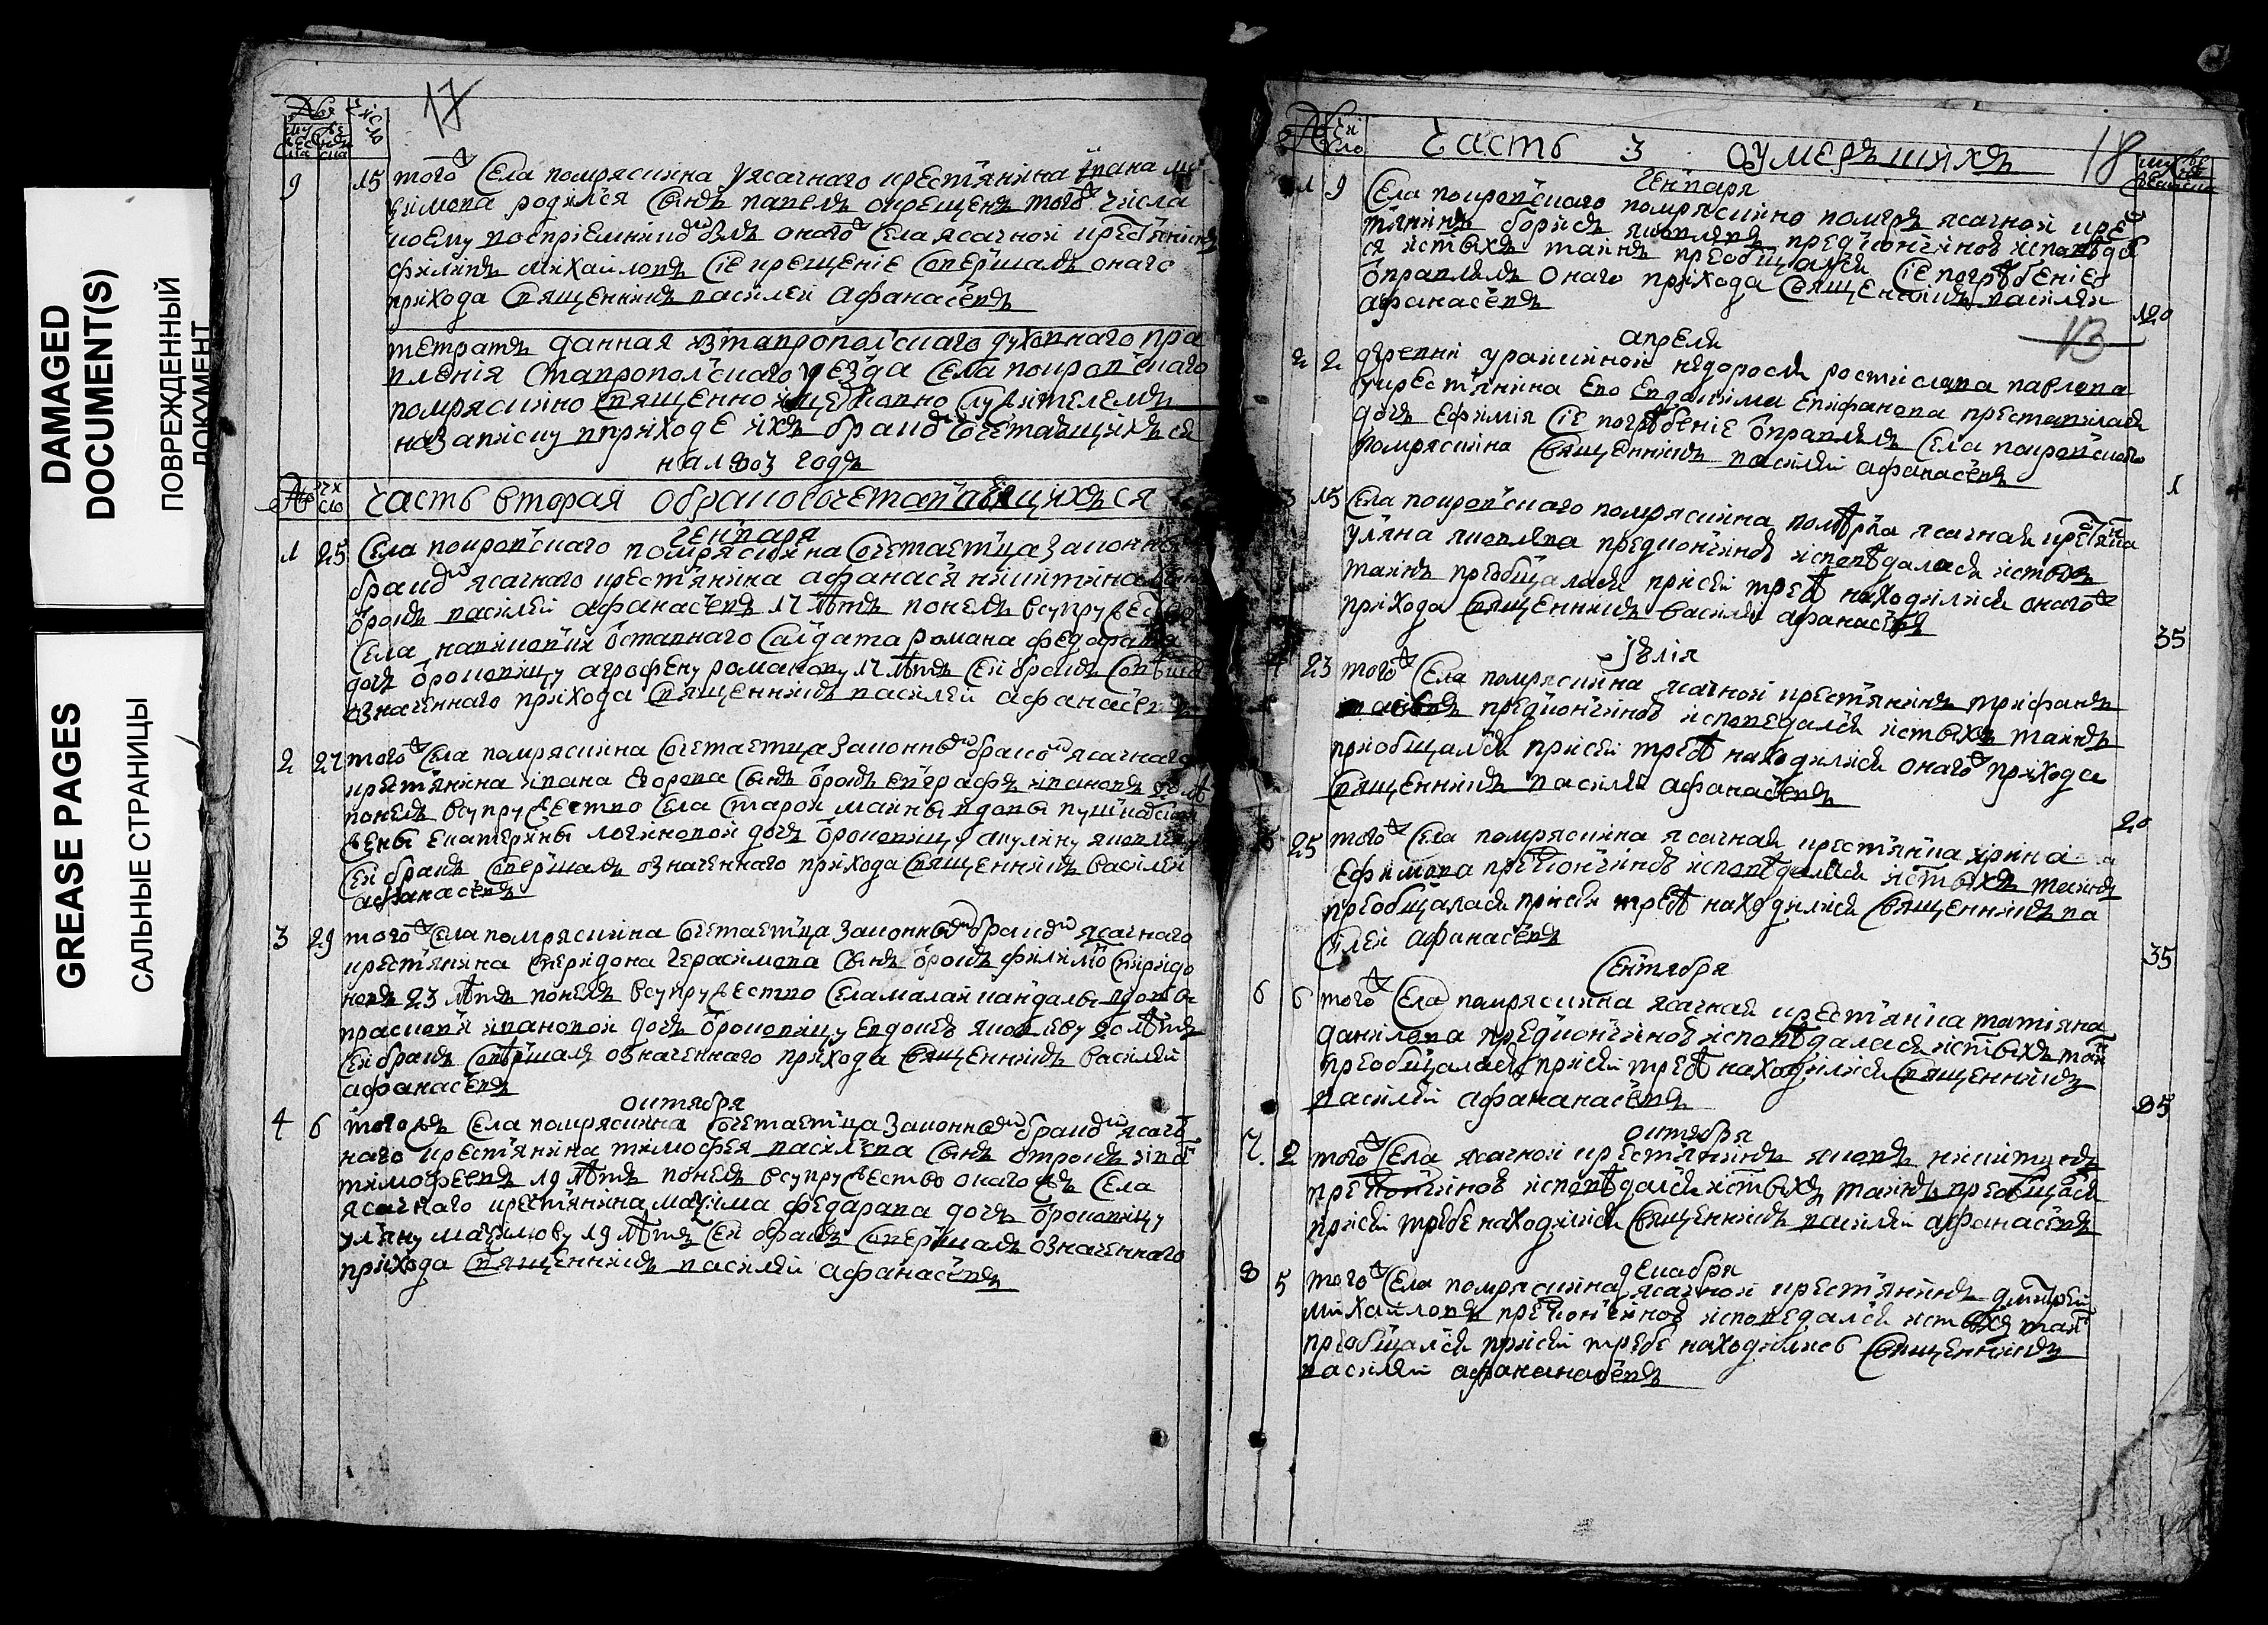 DAMAGED
DOCUMENT(S)
ПОВРЕЖДЕННЫЙ
ДОКУМЕНТ
GREASE PAGES
САЛЬНЫЕ СТРАНИЦЫ
17
№ число
9 15 того ж села помряскина у ясачнаго крестьянина ивана
родился сынъ павелъ окрещенъ того ж числа
коему воспріемникомъ былъ онаго ж села ясачной крестьянинъ
филипъ михайловъ сіе крещеніе совершалъ онаго
прихода священникъ василеи афанасьевъ
тетрать данная изставропольскаго духовнаго пра
вленія ставропольскаго уезда села покровскаго
помряскино священно и церковно служителемъ
на записку вприходе ихъ бракомъ сочетающихся
на 1803 годъ
№ число часть вторая обракосочетавающихъся
генваря
1 25 села покровскаго помряскина сочетаетца законнымъ
бракомъ ясачнаго крестьянина афанасья никитина сынъ
отрокъ василей афанасьевъ 17 летъ понелъ всупружество
села отставнаго салдата романа федорова
дочь отроковицу агрофену романову 17 летъ сей бракъ совершалъ
означеннаго прихода священникъ василей афанасьевъ
2 27 того ж села помряскина сочетаетца законнымъ бракомъ ясачнаго
крестьянина ивана егорова сынъ отрокъ евграфъ ивановъ 20 летъ
понелъ всупружество села старой майны вдовы
жены екатерины логиновой дочь отроковицу акулину яковлеву
сей бракъ совершалъ означеннаго прихода священникъ василей
афанасьевъ
3 29 того ж села помряскина сочетаетца законнымъ бракомъ ясачнаго
крестьянина спиридона герасимова сынъ отрокъ филимонъ спиридо
новъ 23 летъ понелъ всупружество села малай кандалы вдовы
прасковьи ивановой дочь отроковицу евдокию яковлеву 20 летъ
сей бракъ совершалъ означеннаго прихода священникъ василей
афанасьевъ
октября
4 6 того жъ села помряскина сочетаетца законнымъ бракомъ ясач
наго крестьянина тимофея василева сынъ отрокъ иванъ
тимофеевъ 19 летъ понелъ всупружество онаго жъ села
ясачнаго крестьянина максима федарава дочь отроковицу
ульяну максимову 19 летъ сей бракъ совершалъ означеннаго
прихода священникъ василей афанасьевъ
№ число часть 3 оумершихъ 18
генваря
1 9 села покровскаго помряскино померъ ясачной крес
тьянинъ борисъ яковлевъ предкончиною исповеда
ся истыхъ таинъ преобщался сіе погребеніе
отправлялъ онаго прихода священникъ василеи
афанасьевъ 120
13
апреля
2 2 деревни уражкиной недоросля ростислава павлова
у крестьянина ево евдакима епифанова преставилась
дочь ефимія сіе погребеніе отправлялъ села покровскаго
помряскина священникъ василей афанасьевъ 1
3 15 села покровскаго помряскина померла ясачная крестьянка
ульяна яковлева предкончиною исповедалась истыхъ
таинъ преобщалась присей требе находился онаго ж
прихода священникъ василей афанасьевъ 35
іюлія
23 того ж села помряскина ясачной крестьянинъ трифанъ
предкончиною исповедался истыхъ таинъ
приобщался присей требе находился онаго ж прихода
священникъ василей афанасьевъ 20
5 25 того ж села помряскина ясачная крестьянка ирина
ефимова предкончиною исповедалась истыхъ таинъ
преобщалась присей требе находился священникъ ва
силей афанасьевъ 35
сентября
6 6 того ж села помряскина ясачная крестьянка татьяна
данилова предкончиною исповедалась истыхъ таинъ
преобщалась присей требе находился священникъ
василей афананасьевъ
октября
7 2 того ж села ясачной крестьянинъ яковъ никитинъ
предкончиною исповедался истыхъ таинъ преобщася
присей требе находился священникъ василей афанасьевъ
декабря
8 5 того ж села помряскина ясачной крестьянинъ дмитрей
михайловъ предкончиною исповедался истыхъ таинъ
преобщался присей требе находилсяб священникъ
василей афананасьевъ